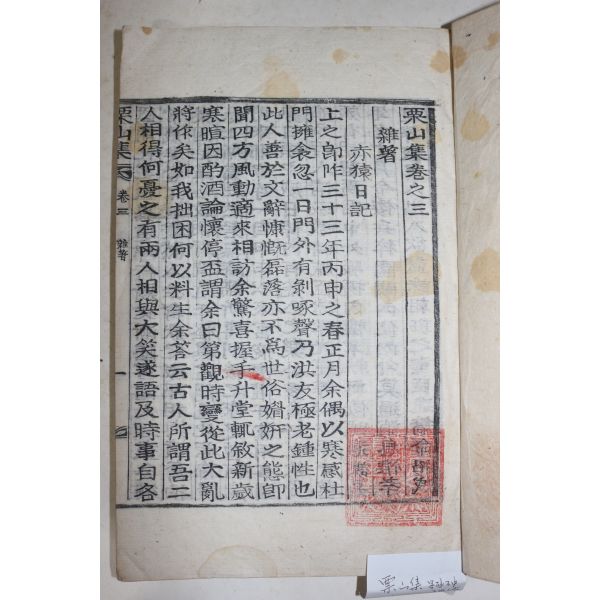 栗山集卷之三
雜著
赤猿日記
上之卽阼三十三年丙申之春正月余偶以寒感杜
門擁衾忽一日門外有剝啄聲乃洪友極老鍾性也
此人善於文辭慷慨磊落亦不爲世俗媕妍之態卽
聞四方風動適來相訪余驚喜握手升堂輒敘新歲
寒暄因酌酒論懷停盃謂余曰第觀時變從此大亂
將作矣如我拙困何以料生余答云古人所謂吾二
人相得何憂之有兩人相與大笑遂語及時事自各
栗山集 卷三 雜著 一